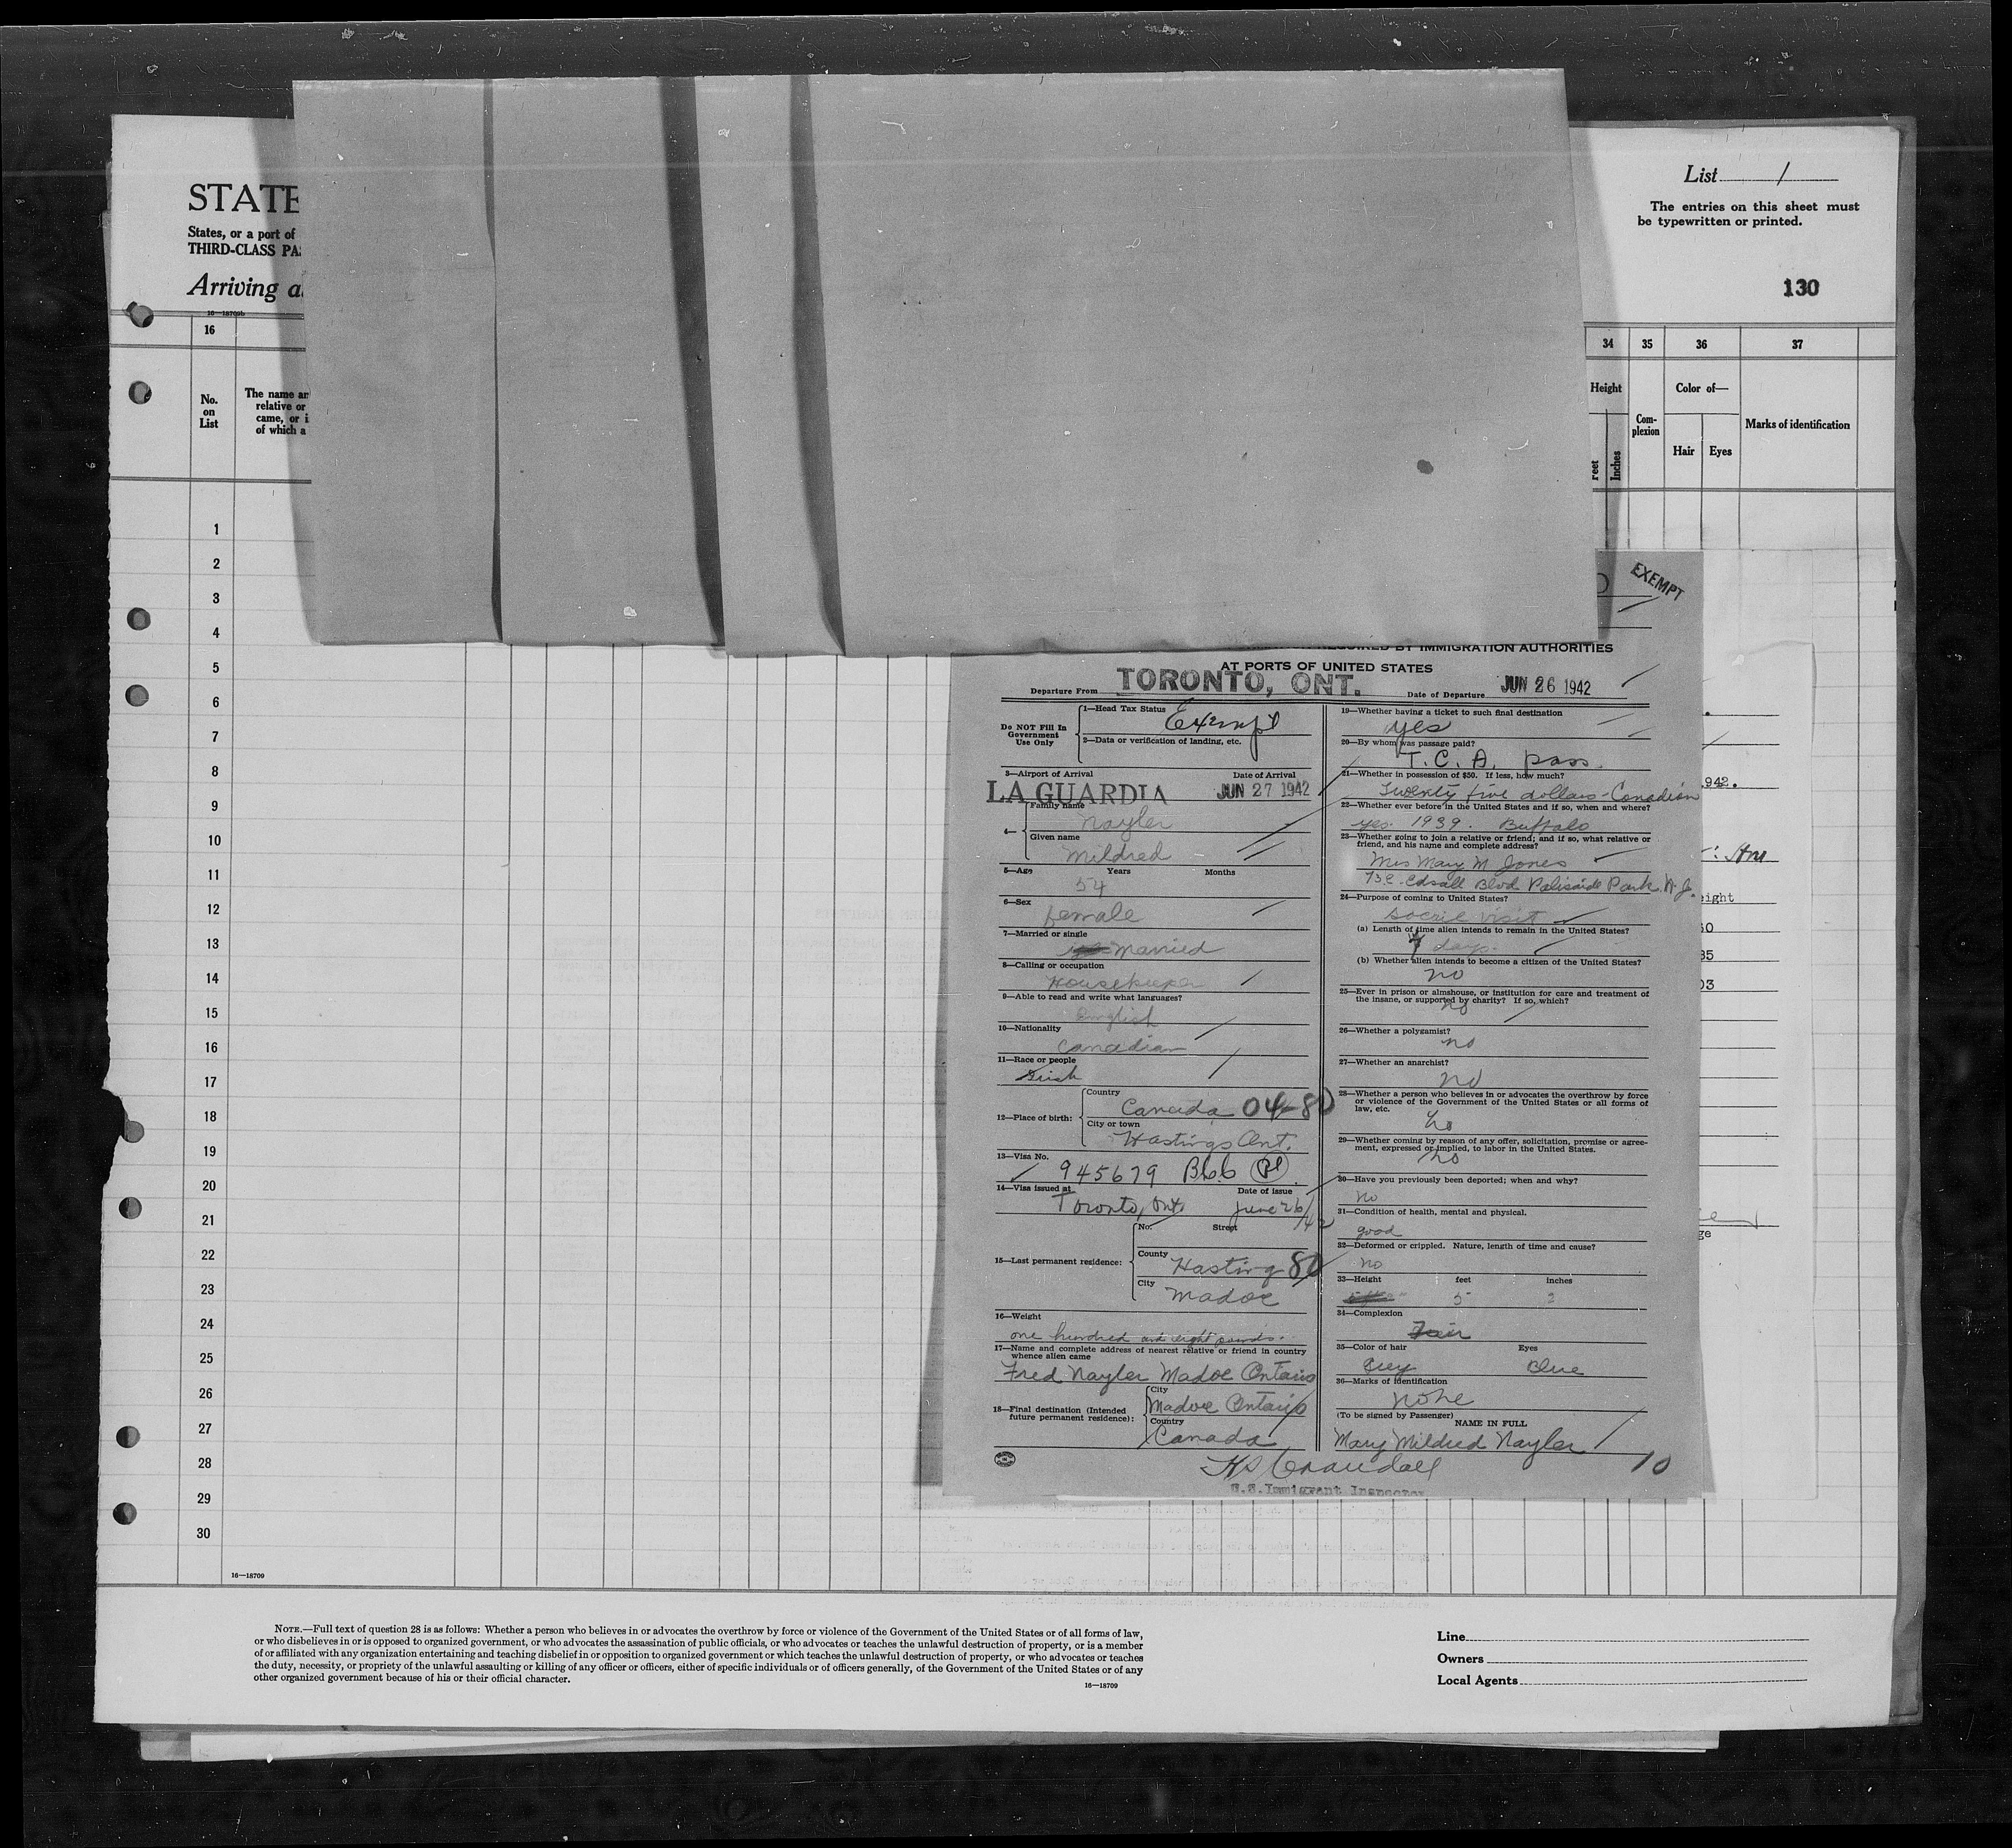 STATE
States, or a port of
THIRD-CLASS PA
Arriving a
16—18709b
List 1
The entries on this sheet must
be typewritten or printed.
130
16
No.
on
List
The name an
relative or
came, or i
of which a
34
35
36
37
Height
Com-
plexion
Color of—
Marks of identification
Hair
Eyes
Inches
1
2
3
4
5
6
7
8
9
10
11
12
13
14
15
16
17
18
19
20
21
22
23
24
25
26
27
28
29
30
16—18709
EXEMPT
REQUIRED BY IMMIGRATION AUTHORITIES
AT PORTS OF UNITED STATES
Departure From TORONTO, ONT. Date of Departure JUN 26 1942
Do NOT Fill In
Government
Use Only
1—Head Tax Status
Exempt
2—Data or verification of landing, etc.
3—Airport of Arrival Date of Arrival
LA GUARDIA JUN 27 1942
4—
Family name
Nayler
Given name
Mildred
5—Age Years Months
54
6—Sex
female
7—Married or single
Married
8—Calling or occupation
Housekeeper
9—Able to read and write what languages?
English
10—Nationality
Canadian
11—Race or people
Irish
12—Place of birth:
Country
Canada 04-80
City or town
Hastings Ont.
13—Visa No.
945679 B66
14—Visa issued at Date of issue
Toronto, Ont. June 26/42
15—Last permanent residence:
No. Street
County
Hasting 80
City
Madoc
16—Weight
one hundred and eight pounds.
17—Name and complete address of nearest relative or friend in country
whence alien came
Fred Nayler Madoc Ontario
18—Final destination (Intended
future permanent residence):
City
Madoc Ontario
Country
Canada
19—Whether having a ticket to such final destination
yes
20—By whom was passage paid?
T.C.A. pass.
21—Whether in possession of $50. If less, how much?
Twenty five dollars - Canadian
22—Whether ever before in the United States and if so, when and where?
yes. 1939. Buffalo
23—Whether going to join a relative or friend; and if so, what relative or
friend, and his name and complete address?
Mrs Mary M Jones
Edsall Blvd Palisade Park N.J.
24—Purpose of coming to United States?
socile visit
(a) Length of time alien intends to remain in the United States?
7 days.
(b) Whether alien intends to become a citizen of the United States?
no
25—Ever in prison or almshouse, or institution for care and treatment of
the insane, or supported by charity? If so, which?
no
26—Whether a polygamist?
no
27—Whether an anarchist?
no
28—Whether a person who believes in or advocates the overthrow by force
or violence of the Government of the United States or all forms of
law, etc.
no
29—Whether coming by reason of any offer, solicitation, promise or agree-
ment, expressed or implied, to labor in the United States.
no
30—Have you previously been deported; when and why?
no
31—Condition of health, mental and physical.
good
32—Deformed or crippled. Nature, length of time and cause?
no
33—Height feet inches
5 2
34—Complexion
Fair
35—Color of hair Eyes
Grey Blue
36—Marks of identification
None
(To be signed by Passenger) NAME IN FULL
Mary Mildred Nayler
10
H S Crandall
U.S. Immigrant Inspector
942.
eight
35
03
NOTE.—Full text of question 28 is as follows: Whether a person who believes in or advocates the overthrow by force or violence of the Government of the United States or of all forms of law,
or who disbelieves in or is opposed to organized government, or who advocates the assassination of public officials, or who advocates or teaches the unlawful destruction of property, or is a member
of or affiliated with any organization entertaining and teaching disbelief in or opposition to organized government or which teaches the unlawful destruction of property, or who advocates or teaches
the duty, necessity, or propriety of the unlawful assaulting or killing of any officer or officers, either of specific individuals or of officers generally, of the Government of the United States or of any
other organized government because of his or their official character.
16—18709
Line
Owners
Local Agents